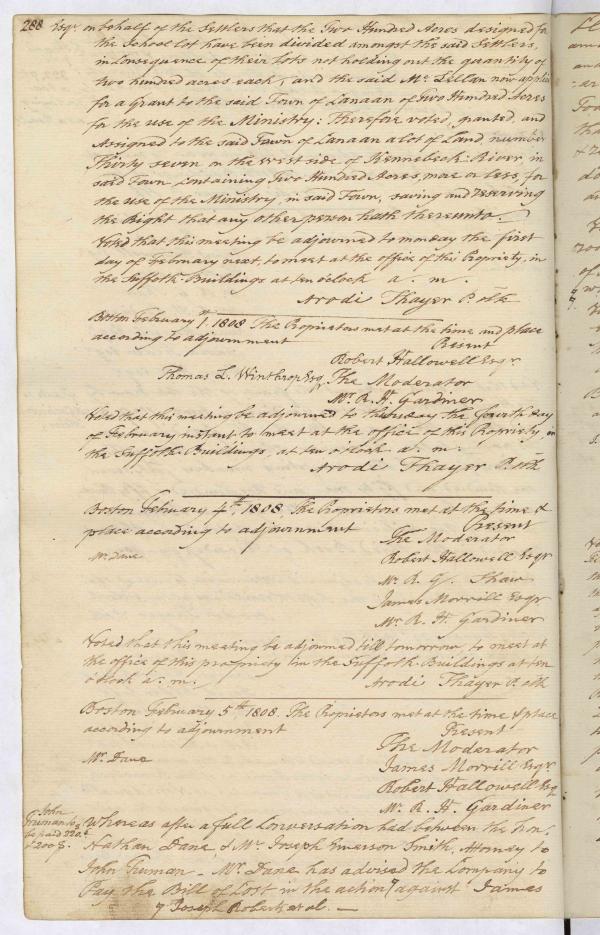 288 Esqr on behalf of the Settlers that the Two Hundred Acres designed for
the School lot have been divided amongst the said Settlers,
in Consequence of their Lots not holding out the quantity of
two hundred acres each, and the said Mc Lellan now applies
for a Grant to the said Town of Canaan of Two Hundred Acres
for the use of the Ministry: Therefore voted, granted, and
Assigned to the said Town of Canaan a lot of Land, number
Thirty seven on the west side of Kennebeck River, in
said Town containing Two Hundred Acres, more or less, for
the use of the Ministry, in said Town, saving and reserving
the Right that any other person hath thereunto.
Voted that this meeting be adjourned to monday the first
day of February next to meet at the office of this Propriety, in
the Suffolk Buildings at ten o'clock a. m.
Arodi Thayer P. Clk
Boston February 1st 1808 The Proprietors met at the time and place
according to adjournment
Present
Robert Hallowell Esqr
Thomas L. Winthrop Esq The Moderator
Mr R. H. Gardiner
Voted that this meeting be adjourned to thursday the fourth day
of February instant to meet at the office of this Propriety in
the Suffolk Buildings, at ten o'clock a. m.
Arodi Thayer P. Clk
Boston February 4th 1808 The Proprietors met at the time &
place according to adjournment
Present
The Moderator
Mr Dane
Robert Hallowell Esqr
Mr R. G. Shaw
James Morrill Esqr
Mr R. H. Gardiner
Voted that this meeting be adjourned till tomorrow, to meet at
the office of this propriety in the Suffolk Buildings at ten
o'clock a. m.
Arodi Thayer P. Clk
Boston February 5th 1808. The Proprietors met at the time & place
according to adjournment
Present
The Moderator
Mr Dane
James Morrill Esqr
Robert Hallowell Esq
Mr R. H. Gardiner
John
Truman to
be paid 220.
Whereas after a full Conversation had between the Hon.
Nathan Dane, & Mr Joseph Emerson Smith, Attorney to
John Truman - Mr Dane has advised the Company to
Pay the Bill of Cost in the action against James
& Joseph Roberts et al.